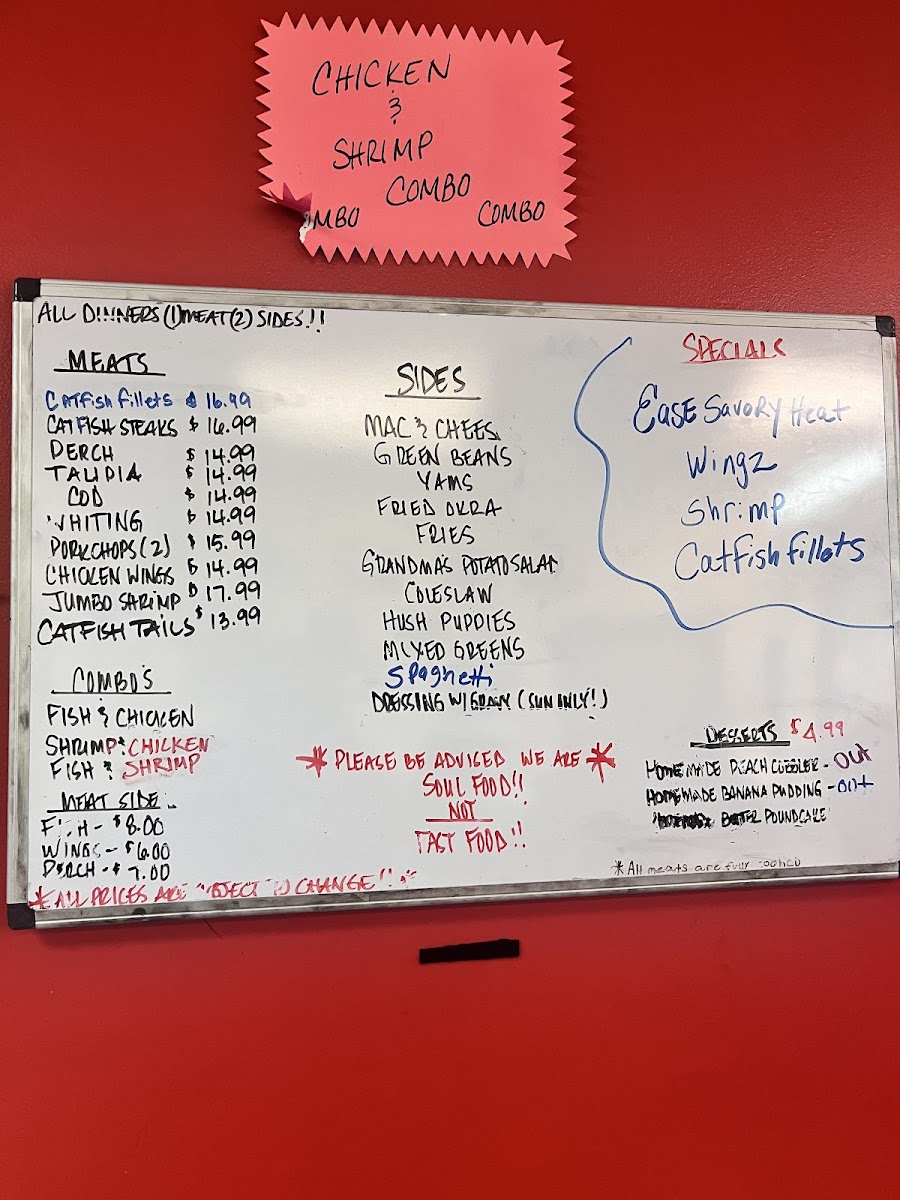 CHICKEN
&
SHRIMP
COMBO
OMBO
COMBO
ALL DINNERS (1) MEAT (2) SIDES!!
MEATS
CATfish fillets $ 16.99
CATFISH STEAKS $ 16.99
PERCH $ 14.99
TALIPIA $ 14.99
COD $ 14.99
WHITING $ 14.99
PORKCHOPS (2) $ 15.99
CHICKEN WINGS $ 14.99
JUMBO SHRIMP $ 17.99
CATFISH TAILS $ 13.99
COMBO'S
FISH & CHICKEN
SHRIMP & CHICKEN
FISH & SHRIMP
MEAT SIDE
FISH - $8.00
WINGS - $6.00
PERCH - $ 7.00
*ALL PRICES ARE SUBJECT TO CHANGE!!*
SIDES
MAC & CHEES
GREEN BEANS
YAMS
FRIED OKRA
FRIES
GRANDMA'S POTATO SALAD
COLESLAW
HUSH PUPPIES
MIXED GREENS
Spaghetti
DRESSING W/GRAVY (SUN ONLY!)
* PLEASE BE ADVICED WE ARE *
SOUL FOOD!!
NOT
FAST FOOD!!
SPECIALS
Ease Savory Heat
Wingz
Shrimp
Catfish fillets
DESSERTS $4.99
HOMEMADE PEACH COBBLER - OUT
HOMEMADE BANANA PUDDING - OUT
BUTTER POUNDCAKE
*All meats are fully cooked